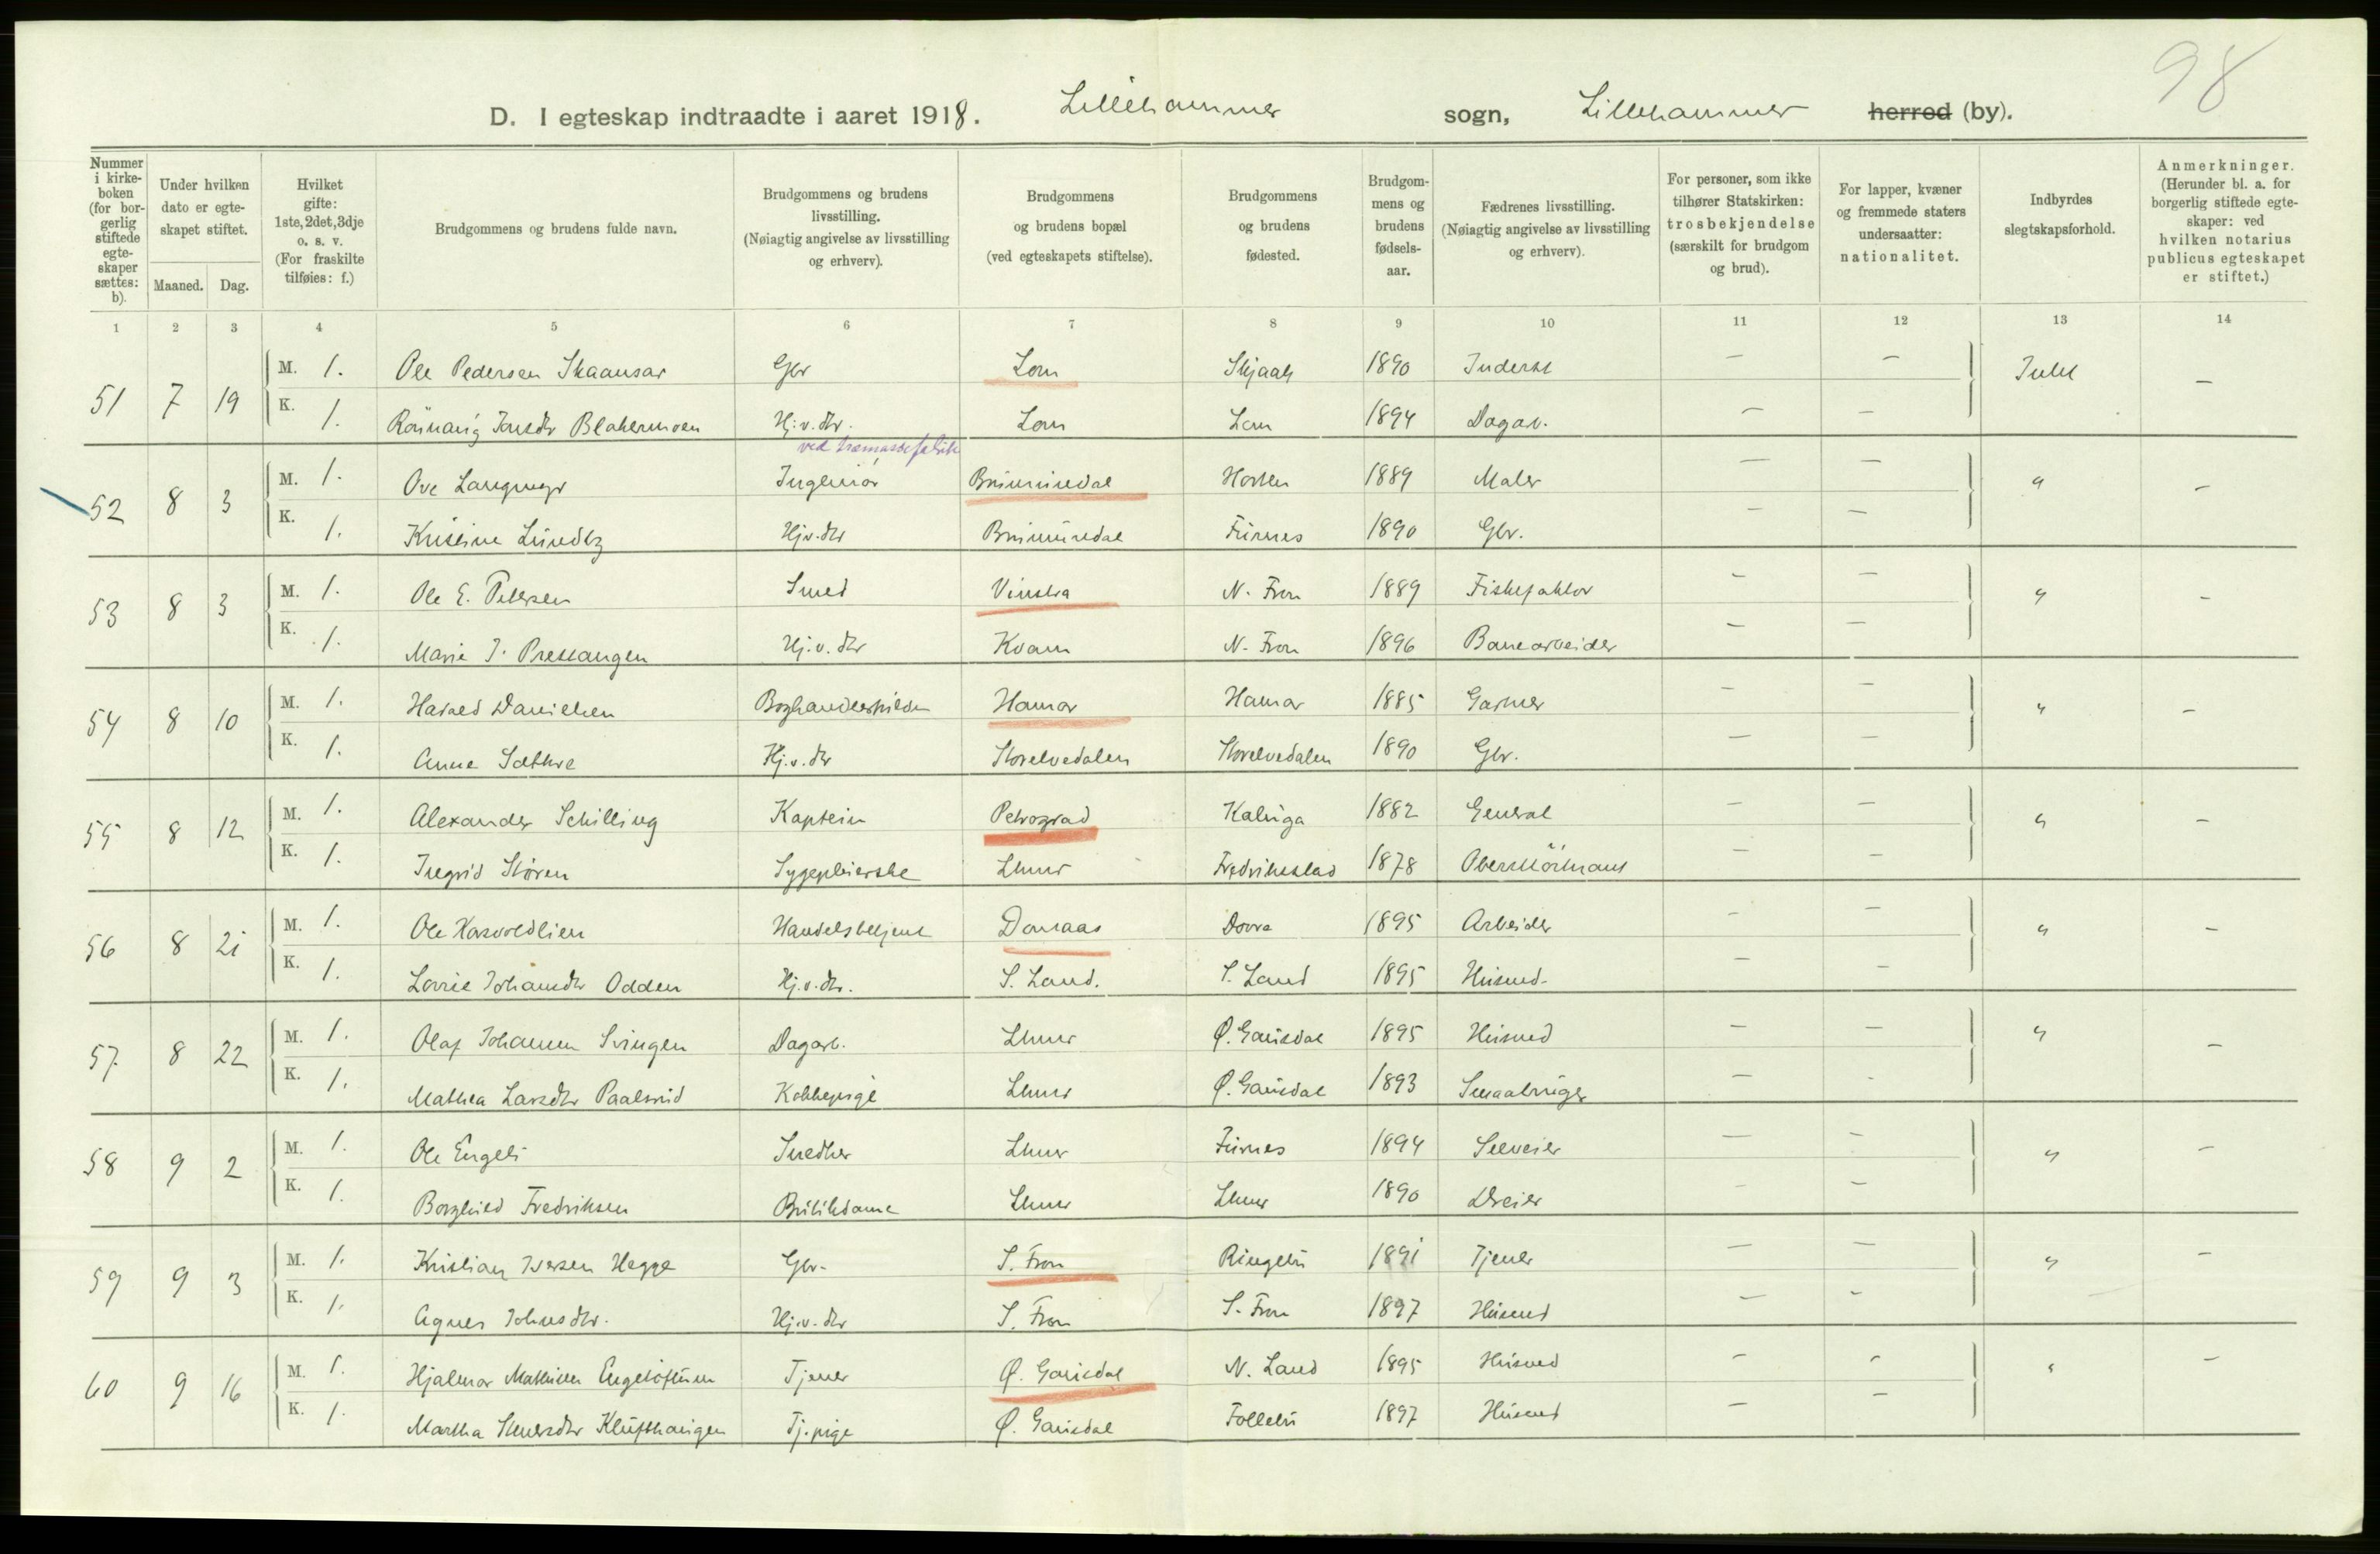 98
D. I egteskap indtraadte i aaret 1918. Lillehammer sogn, Lillehammer herred (by).
Nummer i kirkeboken (for borgerlig stiftede egteskaper sættes: b).
Under hvilken dato er egteskapet stiftet.
Maaned. Dag.
Hvilket gifte: 1ste, 2det, 3dje o. s. v. (For fraskilte tilføies: f.)
Brudgommens og brudens fulde navn.
Brudgommens og brudens livsstilling. (Nøiagtig angivelse av livsstilling og erhverv).
Brudgommens og brudens bopæl (ved egteskapets stiftelse).
Brudgommens og brudens fødested.
Brudgommens og brudens fødselsaar.
Fædrenes livsstilling. (Nøiagtig angivelse av livsstilling og erhverv).
For personer, som ikke tilhører Statskirken: trosbekjendelse (særskilt for brudgom og brud).
For lapper, kvæner og fremmede staters undersaatter: nationalitet.
Indbyrdes slegtskapsforhold.
Anmerkninger. (Herunder bl. a. for borgerlig stiftede egteskaper: ved hvilken notarius publicus egteskapet er stiftet.)
1 2 3 4 5 6 7 8 9 10 11 12 13 14
51 7 19 M. 1. Ole Pedersen Skaansar Gbr Lom Skjaak 1890 Inderst — — Intet —
K. 1. Rønnaug Jonsdtr Blakermoen Hj.v.dtr. Lom Lom 1894 Dagarb. — —
ved træmassefabrik
52 8 3 M. 1. Ove Langmyr Ingeniør Brumunddal Horten 1889 Maler — — " —
K. 1. Kristine Lundby Hjv.dtr Brumunddal Furnes 1890 Gbr. — —
53 8 3 M. 1. Ole E. Petersen Smed Vinstra N. Fron 1889 Fiskefaktor — — " —
K. 1. Marie J. Prestangen Hj.v.dtr Kvam N. Fron 1896 Banearbeider — —
54 8 10 M. 1. Harald Danielsen Boghandler Hamar Hamar 1885 Garver — — " —
K. 1. Anne Sæthre Hj.v.dtr Storelvedalen Storelvedalen 1890 Gbr. — —
55 8 12 M. 1. Alexander Schilling Kaptein Petrograd Kaluga 1882 General — — " —
K. 1. Ingrid Støren Sygepleierske Lhmr Fredrikstad 1878 — —
56 8 21 M. 1. Ole Korsvoldlien Handelsbetjent Domaas Dovre 1895 Arbeider — — " —
K. 1. Lovise Johansdtr Odden Hj.v.dtr. S. Land. S. Land 1895 Husmd. — —
57 8 22 M. 1. Olaf Johansen Svingen Dagarb. Lhmr Ø. Gausdal 1895 Husmd — — " —
K. 1. Mathea Larsdtr Paalsrud Kokkepige Lhmr Ø. Gausdal 1893 Smaabruger — -
58 9 2 M. 1. Ole Engeli Snedker Lhmr Furnes 1894 Selveier — — " —
K. 1. Borghild Fredriksen Butikdame Lhmr Lhmr 1890 Dreier — —
59 9 3 M. 1. Kristian Iversen Hegge Gbr. S. Fron Ringebu 1891 Tjener — — " —
K. 1. Agnes Johnsdtr. Hj.v.dtr S. Fron S. Fron 1897 Husmd — —
60 9 16 M. 1. Hjalmar Mathisen Engeløftum Tjener Ø. Gausdal N. Land 1895 Husmd — — " —
K. 1. Martha Klufthaugen Tj.pige Ø. Gausdal Follebu 1897 Husmd — —